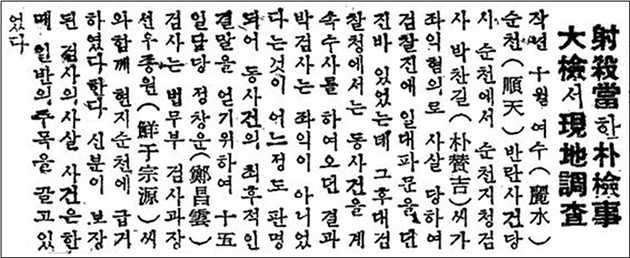 射殺當한朴檢事
大檢서現地調査
작년 十월 여수(麗水)
순천(順天) 반란사건당
시 순천에서 순천지청검
사 박찬길(朴贊吉)씨가
좌익혐의로 사살 당하여
검찰진애 일대파문을 던
진바 있었는데 그후대검
찰청에서는 동사건을 계
속수사를 하여오던 결과
박검사는 좌익이 아니었
다는것이 어느정도 판명
되어 동사건의 최후적인
결말을 얻기위하여 十五
일담당 정창운(鄭昌雲)
검사는 법무부 검사과장
선우종원(鮮于宗源)씨
와함께 현지순천에 급거
하였다한다 신분이 보장
된 검사의사살 사건은한
때 일반의주목을 끌고있
었다